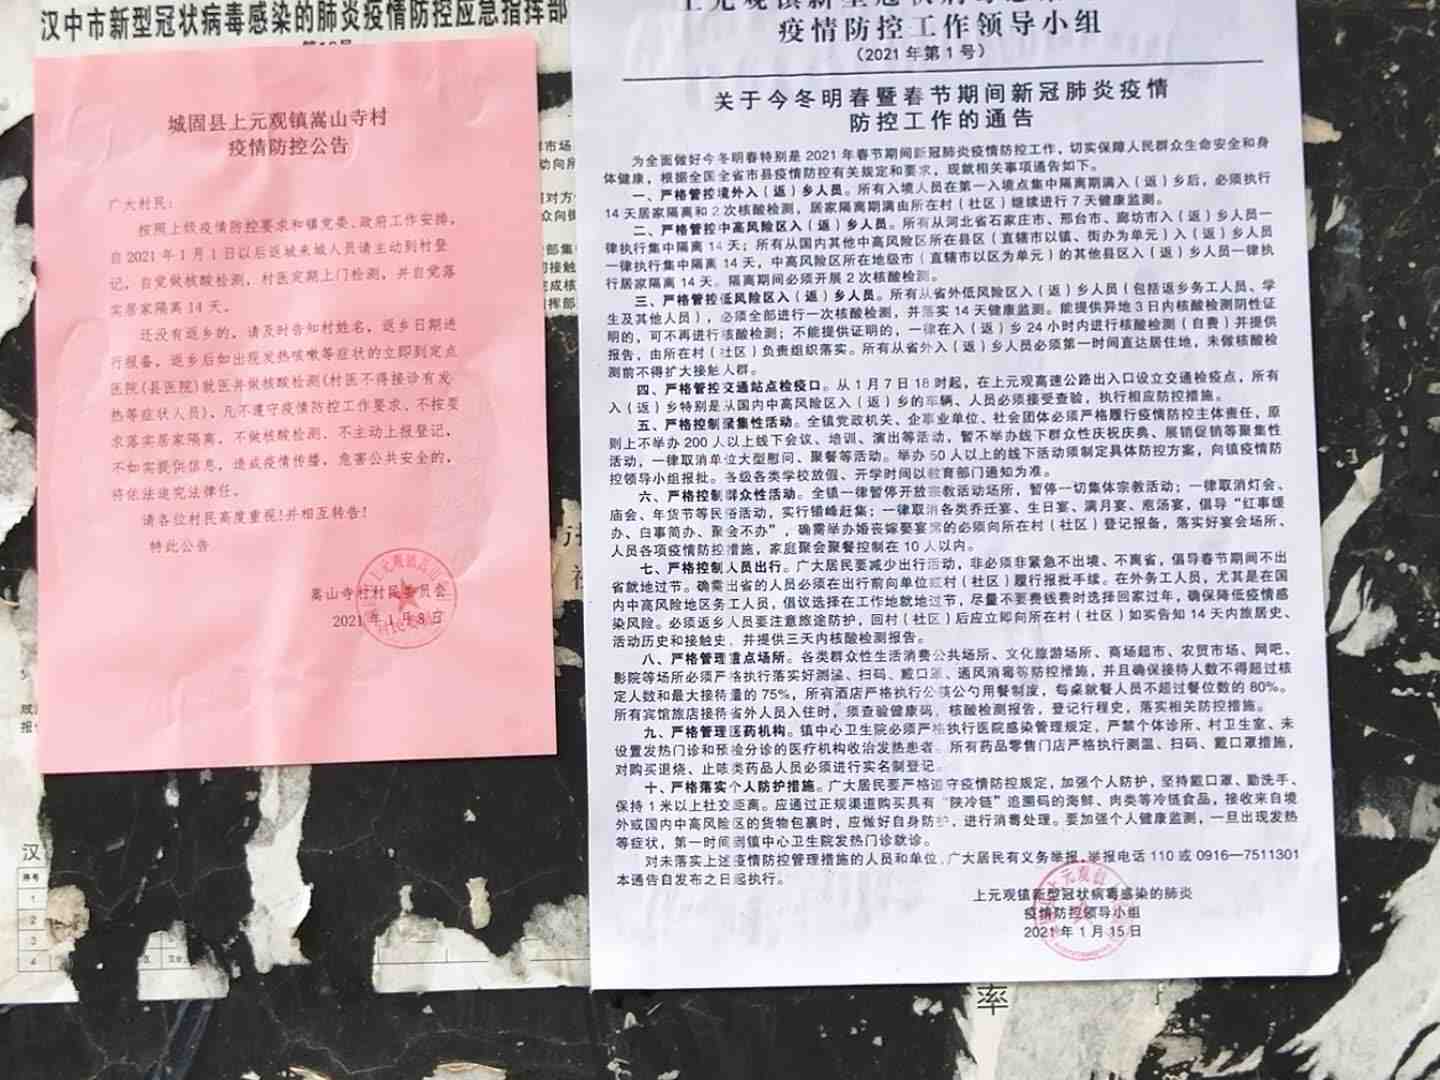 汉中市新型冠状病毒感染的肺炎疫情防控应急指挥部
城固县上元观镇嵩山寺村
疫情防控公告
广大村民：
按照上级疫情防控要求和镇党委、政府工作安排，
自2021年1月1日以后返城来城人员请主动到村登
记，自觉做核酸检测，村医定期上门检测，并自觉落
实居家隔离14天。
还没有返乡的，请及时告知村姓名，返乡日期进
行报备，返乡后如出现发热咳嗽等症状的立即到定点
医院(县医院)就医并做核酸检测(村医不得接诊有发
热等症状人员)，凡不遵守疫情防控工作要求，不按要
求落实居家隔离，不做核酸检测、不主动上报登记，
不如实提供信息，造成疫情传播，危害公共安全的，
将依法追究法律任。
请各位村民高度重视!并相互转告!
特此公告
嵩山寺村村民委员会
2021年1月8日
上元观镇新型冠状病毒感染
疫情防控工作领导小组
（2021年第1号）
关于今冬明春暨春节期间新冠肺炎疫情
防控工作的通告
为全面做好今冬明春特别是2021年春节期间新冠肺炎疫情防控工作，切实保障人民群众生命安全和身
体健康，根据全国全省市县疫情防控有关规定和要求，现就相关事项通告如下。
一、严格管控境外入（返）乡人员。所有入境人员在第一入境点集中隔离期满入（返）乡后，必须执行
14天居家隔离和2次核酸检测，居家隔离期满由所在村（社区）继续进行7天健康监测。
二、严格管控中高风险区入（返）乡人员。所有从河北省石家庄市、邢台市、廊坊市入（返）乡人员一
律执行集中隔离14天；所有从国内其他中高风险区所在县区（直辖市以镇、街办为单元）入（返）乡人员
一律执行集中隔离14天，中高风险区所在地级市（直辖市以区为单元）的其他县区入（返）乡人员一律执
行居家隔离14天。隔离期间必须开展2次核酸检测。
三、严格管控低风险区入（返）乡人员。所有从省外低风险区入（返）乡人员（包括返乡务工人员、学
生及其他人员），必须全部进行一次核酸检测，并落实14天健康监测。能提供异地3日内核酸检测阴性证
明的，可不再进行核酸检测；不能提供证明的，一律在入（返）乡24小时内进行核酸检测（自费）并提供
报告，由所在村（社区）负责组织落实。所有从省外入（返）乡人员必须第一时间直达居住地，未做核酸检
测前不得扩大接触人群。
四、严格管控交通站点检疫口。从1月7日18时起，在上元观高速公路出入口设立交通检疫点，所有
入（返）乡特别是从国内中高风险区入（返）乡的车辆、人员必须接受查验，执行相应防控措施。
五、严格控制聚集性活动。全镇党政机关、企事业单位、社会团体必须严格履行疫情防控主体责任，原
则上不举办200人以上线下会议、培训、演出等活动，暂不举办线下群众性庆祝庆典、展销促销等聚集性
活动，一律取消单位大型慰问、聚餐等活动。举办50人以上的线下活动须制定具体防控方案，向镇疫情防
控领导小组报批。各级各类学校放假、开学时间以教育部门通知为准。
六、严格控制群众性活动。全镇一律暂停开放宗教活动场所，暂停一切集体宗教活动；一律取消灯会、
庙会、年货节等民俗活动，实行错峰赶集；一律取消各类乔迁宴、生日宴、满月宴、泡汤宴，倡导“红事缓
办、白事简办、聚会不办”，确需举办婚丧嫁娶宴席的必须向所在村（社区）登记报备，落实好宴会场所、
人员各项疫情防控措施，家庭聚会聚餐控制在10人以内。
七、严格控制人员出行。广大居民要减少出行活动，非必须非紧急不出境、不离省，倡导春节期间不出
省就地过节。确需出省的人员必须在出行前向单位或村（社区）履行报批手续。在外务工人员，尤其是在国
内中高风险地区务工人员，倡议选择在工作地就地过节，尽量不要费线费时选择回家过年，确保降低疫情感
染风险。必须返乡人员要注意旅途防护，回村（社区）后应立即向所在村（社区）如实告知14天内旅居史、
活动历史和接触史，并提供三天内核酸检测报告。
八、严格管理重点场所。各类群众性生活消费公共场所、文化旅游场所、商场超市、农贸市场、网吧、
影院等场所必须严格执行落实好测温、扫码、戴口罩、通风消毒等防控措施，并且确保接待人数不得超过核
定人数和最大接待量的75%，所有酒店严格执行公筷公勺用餐制度，每桌就餐人员不超过餐位数的80%。
所有宾馆旅店接待省外人员入住时，须查验健康码、核酸检测报告，登记行程史，落实相关防控措施。
九、严格管理医药机构。镇中心卫生院必须严格执行医院感染管理规定，严禁个体诊所、村卫生室、未
设置发热门诊和预检分诊的医疗机构收治发热患者。所有药品零售门店严格执行测温、扫码、戴口罩措施，
对购买退烧、止咳类药品人员必须进行实名制登记。
十、严格落实个人防护措施。广大居民要严格遵守疫情防控规定，加强个人防护，坚持戴口罩、勤洗手、
保持1米以上社交距离。应通过正规渠道购买具有“陕冷链”追溯码的海鲜、肉类等冷链食品，接收来自境
外或国内中高风险区的货物包裹时，应做好自身防护，进行消毒处理。要加强个人健康监测，一旦出现发热
等症状，第一时间到镇中心卫生院发热门诊就诊。
对未落实上述疫情防控管理措施的人员和单位，广大居民有义务举报，举报电话110或0916—7511301
本通告自发布之日起执行。
上元观镇新型冠状病毒感染的肺炎
疫情防控领导小组
2021年1月15日
率
汉
序号
1
2
3
4